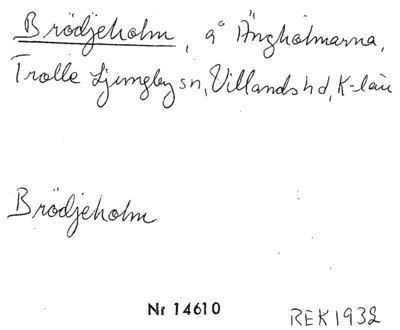 Brödjeholm, å Ängholmarna,
Trolle Ljungby sn, Villands hd, K-län
Brödjeholm
Nr 14610
REK 1932